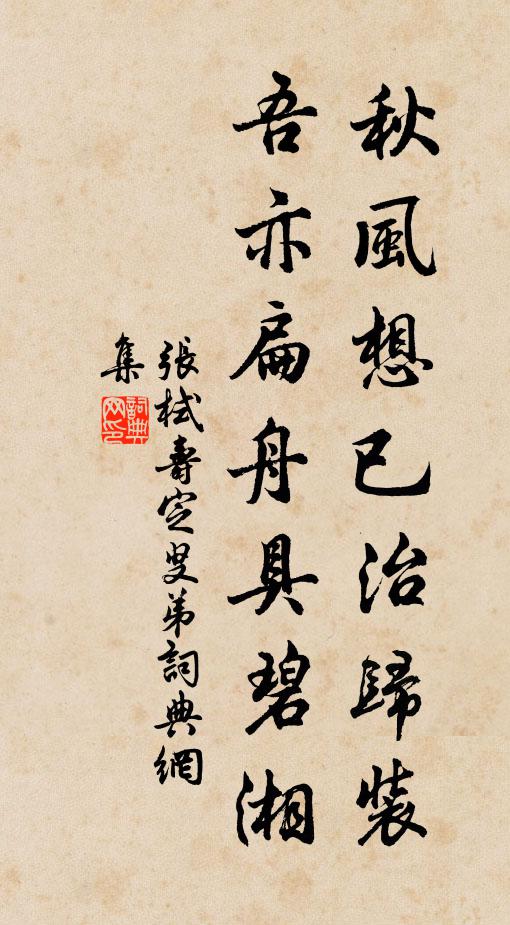 秋風想已治歸裝
吾亦扁舟具碧湘
張栻壽定叟弟詞典網
集
詞典網印